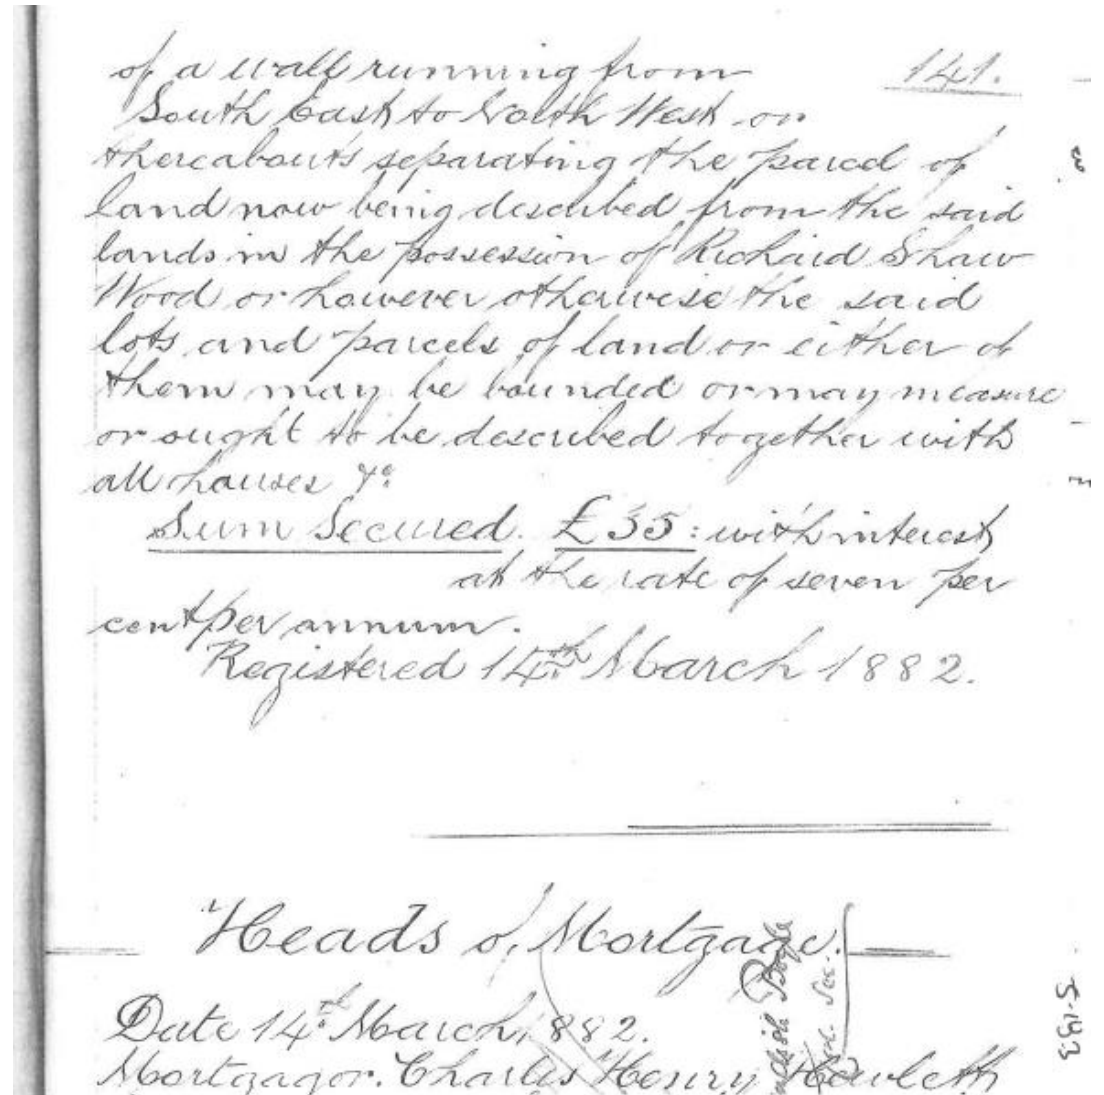 141.
of a wall running from
South East to North West or
thereabouts separating the parcel of
land now being described from the said
lands in the possession of Richard Shaw
Wood or however otherwise the said
lots and parcels of land or either of
them may be bounded or may measure
or ought to be described together with
all houses &c.
Sum Secured. £35: with interest
at the rate of seven per
cent per annum.
Registered 14th March 1882.
Heads of Mortgage.
Date 14th March, 1882.
Mortgagor. Charles Henry
Boyle
Sec.